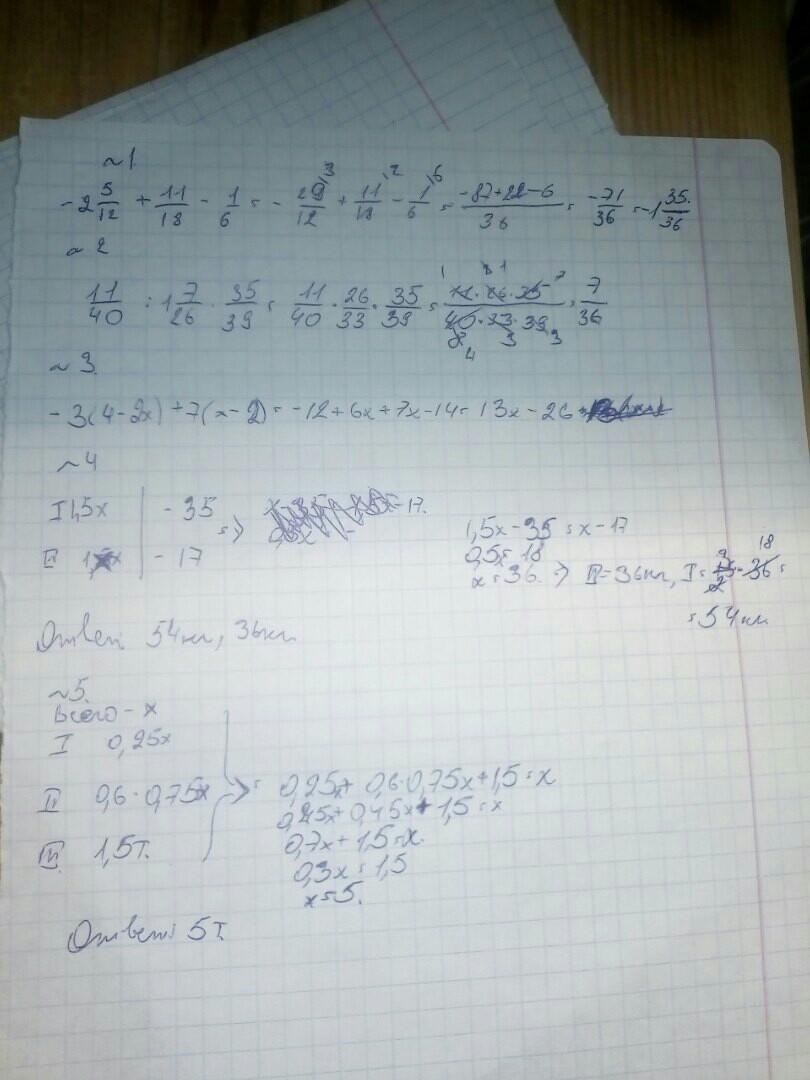 ~1.
-2 5/12 + 11/18 - 1/6 = - 29/12 \3 + 11/18 \2 - 1/6 \6 = -87+22-6/36 = -71/36 = -1 35/36
~2
11/40 : 1 7/26 · 35/39 = 11/40 · 26/33 · 35/39 = 11·26·35/40·33·39 = 7/36
~3.
-3(4-2x)+7(x-2)= -12+6x+7x-14= 13x-26
~4
I 1,5x - 35 => =17. 1,5x-35=x-17
II x - 17 0,5x=18
x=36. => II=36кг, I= 3/2·36=
=54кг
Ответ: 54кг, 36кг
~5.
Всего - x
I 0,25x
II 0,6·0,75x => 0,25x+0,6·0,75x+1,5=x
0,25x+0,45x+1,5=x
III 1,5т. 0,7x+1,5=x.
0,3x=1,5
x=5.
Ответ: 5т.